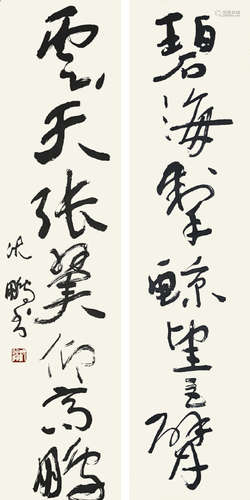 碧海掣鲸望巨擘
云天张翼仰高鹏
沈鹏书